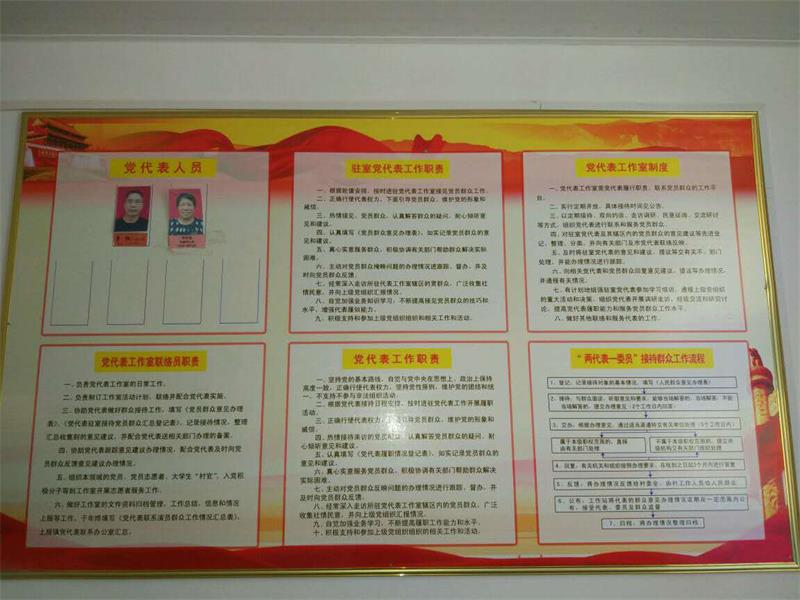 党代表人员
驻室党代表工作职责
一、根据轮值安排，按时进驻党代表工作室接见党员群众工作。
二、正确行使代表权力，下面引导党员群众，维护党的形象和
威信。
三、热情接见，党员群众，认真解答群众的疑问，耐心倾听意
见和建议。
四、认真填写《党群众意见办理表》，如实记录党员群众的意
见和建议。
五、真心实意服务群众，积极协调有关部门帮助群众解决实际
困难。
六、主动对党员群众掩映问题的办理情况进行跟踪、督办，并及
时向党员群众反馈。
七、经常深入走访所驻代表工作室辖区的党群众，广泛收集社
情民意，并向上级党组织汇报情况。
八、自觉加强业务知识学习，不断提高接见党员群众的技巧和
水平，增强代表履似能力。
九、积极支持和参加上级党组织组织和相关工作和活动。
党代表工作室制度
一、党代表工作室需党代表履行职责、联系党员群众的工作平
台。
二、实行定期开放，具体接待时间见公告。
三、以定期接待、双向约谈、走访调研、民意征询、交流研讨
等方式，组织党代表进行联系和服务党员群众。
四、对驻室党代表及其辖区内的党员群众的意见建议等先进登
记、整理、分类，并向有关部门及市党代表联络反映。
五、及时将驻室党代表的意见和建议、提议等交有关不、部门
处理，并能办理情况进行跟踪。
六、向相关党代表和党员回复意见建议、提议等办理情况，
并通报有关情况。
七、有计划地组强驻室党代表参加学习培训，通报上级党组织
的重大活动和决策，组织党代表开展调研走访，经验交流和研究讨
论，提高党代表履职能力和服务党员群众工作水平。
八、做好其他联络和服务代表的工作。
党代表工作室联络员职责
一、负责党代表工作室的日常工作。
二、负责制订工作室活动计划，联络并配合党代表实施。
三、协助党代表做好群众接待工作，填写《党员群众意见办理
表》、《党代表驻室接待党员群众汇总登记表》，记录接待情况，整理
汇总收集到的意见建议，并配合党代表送相关部门办理的备案。
四、协助党代表跟踪意见建议办理情况，配合党代表及时向党
员群众反馈意见建议办理情况。
五、组织本领域的党员、党员志愿者、大学生“村官”、入党积
极分子等到工作室开展志愿者服务工作。
六、做好工作室的文件资料归档管理、工作总结、信息和情况
上报等工作，于年终填写《党代表联系党员群众工作情况汇总表》，
上报镇党代表联系办公室汇总。
党代表工作职责
一、坚持党的基本路线，自觉与党中央在思想上、政治上保持
高度一致，正确行使代表权力，坚持党性原则，维护党的团结和统
一，不支持不参与非法组织活动。
二、根据党代表接待日程安排，按时进驻党代表工作开展履职
活动。
三、正确行使代表权力，引导党员群众，维护党的形象和
威信。
四、热情接待来访的党员群众，认真解答党员群众的疑问，耐
心倾听意见和建议。
五、认真填写《党代表履职情况登记表》，如实记录党员群众的
意见和建议。
六、真心实意服务党员群众，积极协调有关部门帮助群众解决
实际困难。
七、主动对党员群众反映问题的办理情况进行跟踪、督办，并
及时向党员群众反馈。
八、经常深入走访所驻党代表工作室辖区内的党员群众，广泛
收集社情民意，并向上级党组织汇报情况。
九、自觉加强业务学习，不断提高履职工作能力和水平。
十、积极支持和参加上级党组织组织的相关工作和活动。
“两代表一委员”接待群众工作流程
1、登记，记录接待对象的基本情况，填写《人民群众意见办理表》
2、接待，与群众座谈，听取意见和要求，能够当场解答的，当场解答；不能
当场解答的，提交办理意见（2个工作日内回答）
3、交办，根据办理意见，通过适当渠道转交有关单位处理（5个工作日内）
属于本级职权范围的，直接
由有关部门处理
不属于本级职权范围的，提交政
级机构交有关部门按职处理
4、回复，有关机关和组织按照办理要求，在收到之日起3个月内进行答复
5、反馈，将办理情况反馈给村委会，由村工作人员给人民群众
6、公布，工作站将代表的群众意见办理情况定期在一定范围内公
布，接受代表、委员及群众监督
7、归档，将办理情况整理归档